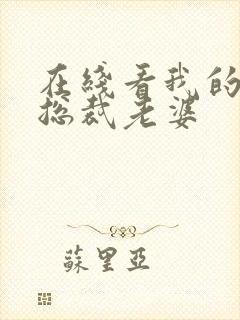 在綫看我的
总裁老婆
蘇里亞